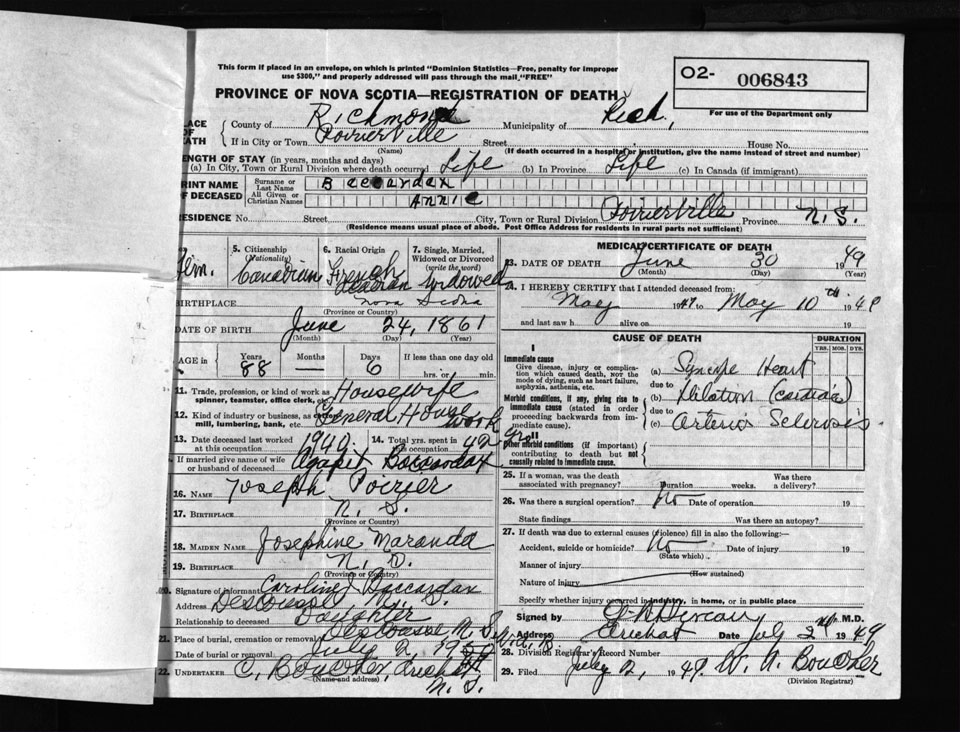 This form if placed in an envelope, on which is printed "Dominion Statistics—Free, penalty for improper
use $300," and properly addressed will pass through the mail "FREE"
PROVINCE OF NOVA SCOTIA—REGISTRATION OF DEATH
O2- 006843
For use of the Department only
LACE OF ATH
County of Richmond Municipality of Rich.
If in City or Town Poirierville Street House No.
(Name) (If death occurred in a hospital or institution, give the name instead of street and number)
ENGTH OF STAY (in years, months and days)
(a) In City, Town or Rural Division where death occurred Life (b) In Province Life (c) In Canada (if immigrant)
PRINT NAME OF DECEASED
Surname or Last Name Boccardax
All Given or Christian Names Annie
RESIDENCE No. Street City, Town or Rural Division Poirierville Province N.S.
(Residence means usual place of abode. Post Office Address for residents in rural parts not sufficient)
Fem.
5. Citizenship (Nationality) Canadian
6. Racial Origin French
7. Single, Married, Widowed or Divorced (write the word) Widowed
BIRTHPLACE Nova Scotia
(Province or Country)
DATE OF BIRTH June 24, 1861
(Month) (Day) (Year)
AGE in Years 88 Months — Days 6 If less than one day old hrs. or min.
11. Trade, profession, or kind of work as spinner, teamster, office clerk, etc. Housewife
12. Kind of industry or business, as cotton mill, lumbering, bank, etc. General House work
13. Date deceased last worked at this occupation 1940.
14. Total yrs. spent in this occupation 42 yrs
If married give name of wife or husband of deceased Agapit Boccardax
16. NAME Joseph Poirier
17. BIRTHPLACE N. S.
(Province or Country)
18. MAIDEN NAME Josephine Maranda
19. BIRTHPLACE N. S.
(Province or Country)
20. Signature of informant Caroline Boccardax
Address Descousse, N. S.
Relationship to deceased Daughter
21. Place of burial, cremation or removal Descousse N. S.
Date of burial or removal July 2,
22. UNDERTAKER C. Boucher, Arichat N. S.
(Name and address)
MEDICAL CERTIFICATE OF DEATH
23. DATE OF DEATH June 30 1949
(Month) (Day) (Year)
24. I HEREBY CERTIFY that I attended deceased from:
May 1949 to May 10th 1949
and last saw h alive on 19
CAUSE OF DEATH
DURATION
YRS. MOS. DYS.
I
Immediate cause
Give disease, injury or complication which caused death, nor the mode of dying, such as heart failure, asphyxia, asthenia, etc.
(a) Syncope Heart
due to
Morbid conditions, if any, giving rise to immediate cause (stated in order proceeding backwards from immediate cause).
(b) Dilation (cardiac)
due to
(c) Arterio Sclerosis
II
Other morbid conditions (if important) contributing to death but not causally related to immediate cause.
25. If a woman, was the death associated with pregnancy? Duration weeks. Was there a delivery?
26. Was there a surgical operation? No Date of operation 19
State findings Was there an autopsy?
27. If death was due to external causes (violence) fill in also the following:—
Accident, suicide or homicide? No Date of injury 19
(State which)
Manner of injury
(How sustained)
Nature of injury
Specify whether injury occurred in industry, in home, or in public place
Signed by M.D.
Address Arichat Date July 2nd 1949
28. Division Registrar's Record Number
29. Filed July 2, 1949. W. A. Boucher
(Division Registrar)